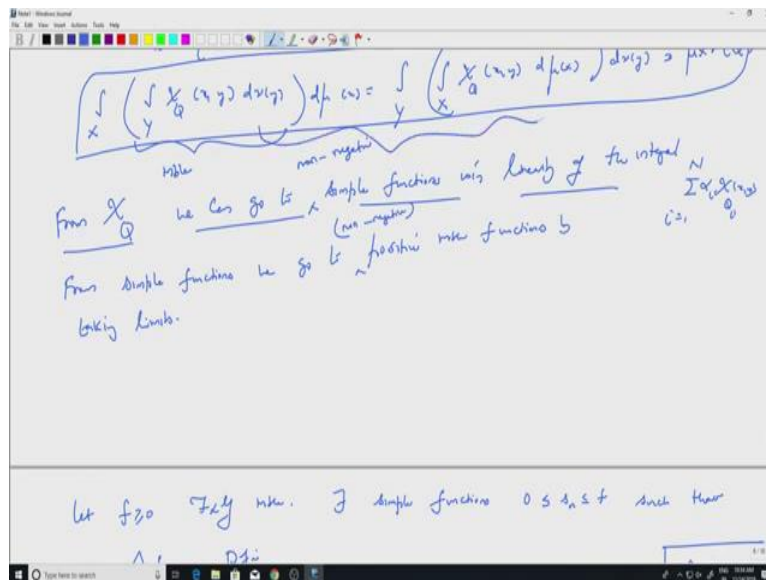 Note1 - Windows Journal
File Edit View Insert Actions Tools Help
∫_X ( ∫_Y χ_Q (x, y) dν(y) ) dμ (x) = ∫_Y ( ∫_X χ_Q (x, y) dμ(x) ) dν(y) =
mble non-negative
From χ_Q we can go to simple functions using linearity of the integral
(non-negative)
N Σ i=1 α_i χ_{Q_i} (x, y)
From simple functions we go to positive mble functions b
taking limits.
Let f ≥ 0 F×G mble. ∃ simple functions 0 ≤ s_n ≤ f such that
Type here to search